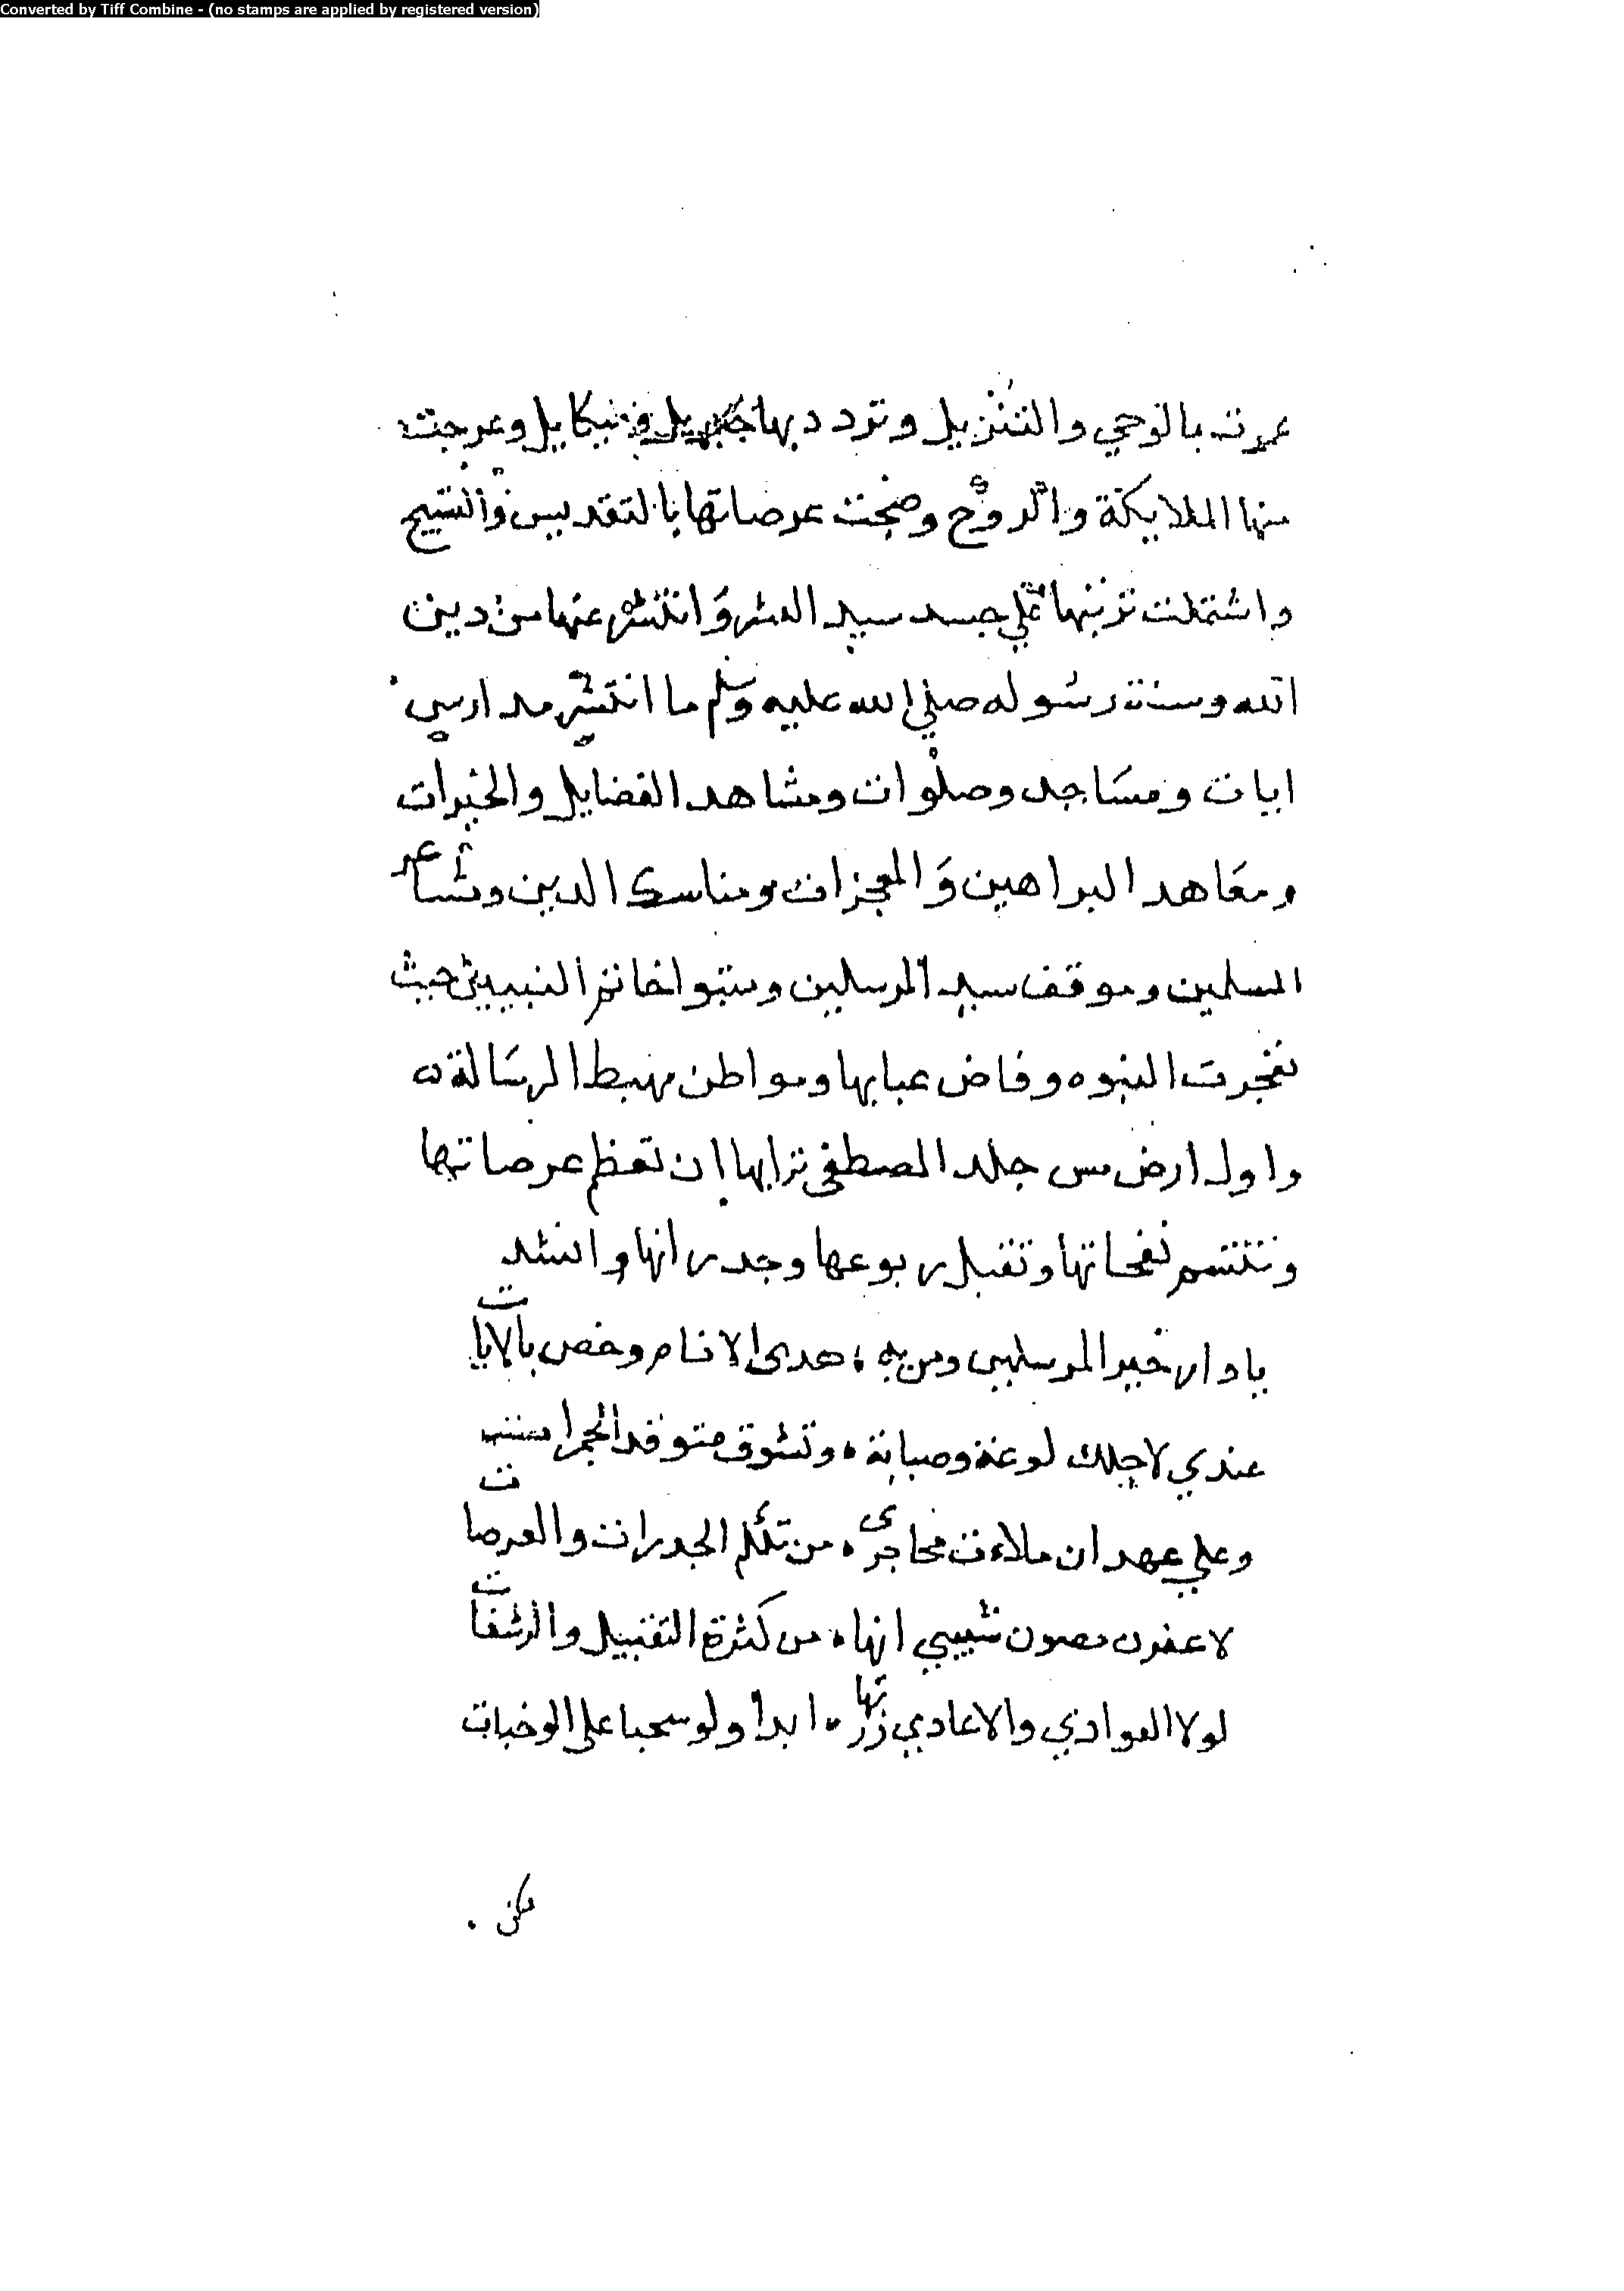 Converted by Tiff Combine - (no stamps are applied by registered version)
عمرت بالوحي والتنزيل وتردد بها جبريل وميكايل وعرجت
منها الملايكة والروح وضجت عرصاتها بالتقديس والتسبيح
واشتملت تربتها علي جسد سيد البشر وانتشر عنها من دين
الله وسنة رسوله صلي الله عليه وسلم ما انتشر مدارس
ايات ومساجد وصلوات ومشاهد الفضايل والخيرات
ومعاهد البراهين والمعجزات ومناسك الدين ومشاعر
المسلمين وموقف سيد المرسلين ومتبوا خاتم النبيين حيث
تفجرت النبوه وفاض عبابها ومواطن مهبط الرسالة
واول ارض مس جلد المصطفي ترابها ان تعظم عرصاتها
وتتنسم نفحاتها وتقبل ربوعها وجدراتها وانشد
يا دار خير المرسلين ومن به هدي الانام وخص بالايات
عندي لاجلك لوعة وصبابة وتشوق متوقد الجمرات
وعلي عهد ان ملاءت محاجري من تلكم الجدرات والعرصات
لاعفرن مصون شيبي انها من كثرة التقبيل والرشفات
لولا العوادي والاعادي زرتها ابدا ولو سحبا علي الوجنات
لكن